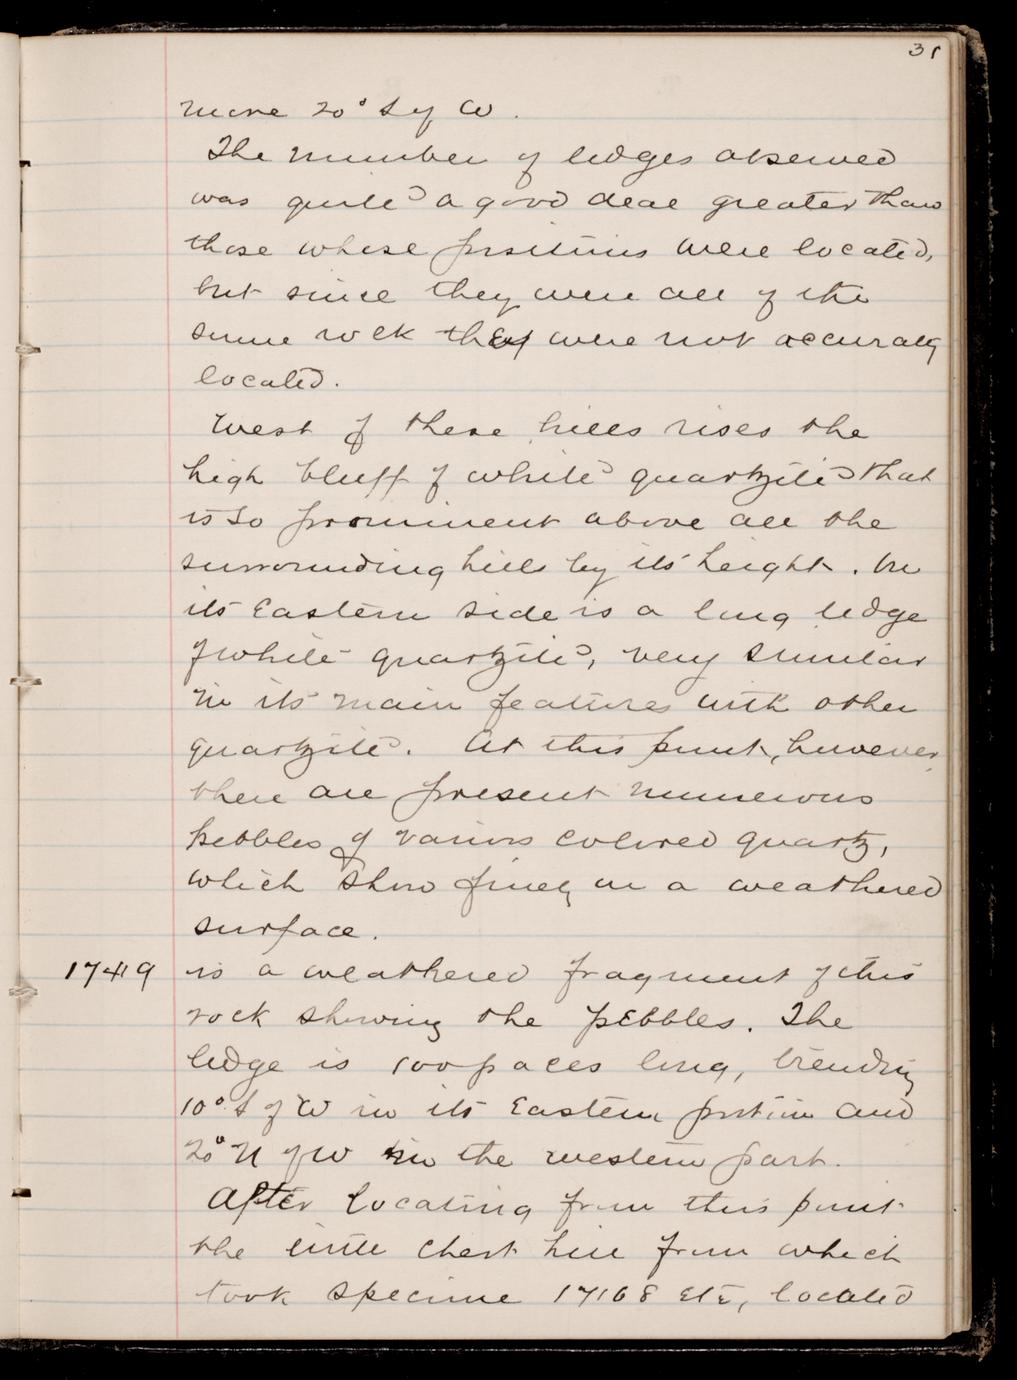 31
more 20° S of W.
The number of ledges observed
was quite a good deal greater than
those whose positions were located,
but since they were all of the
same rock they were not accurately
located.
West of these hills rises the
high bluff of white quartzite that
is so prominent above all the
surrounding hills by its height. On
its Eastern side is a long ledge
of white quartzite, very similar
in its main features with other
quartzite. At this point, however,
there are present numerous
pebbles of various colored quartz,
which show finely on a weathered
surface.
17419 is a weathered fragment of this
rock showing the pebbles. The
ledge is 100 paces long, trending
10° S of W in its Eastern portion and
20° N of W in the western part.
After locating from this point
the little chert hill from which
took specime 17168 etc, located